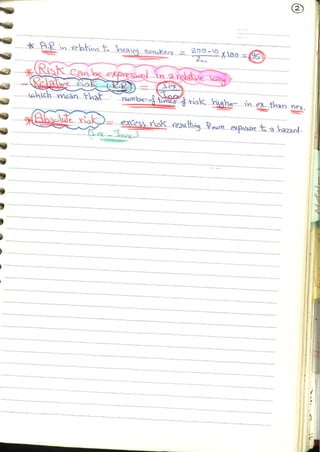 ②
* AR in relation to heavy smokers = 200-10 / 200 x 100 = 95
* Risk can be expressed in a relative way
- Relative risk (R.R) = Iex / Inex
which mean that number of times of risk higher in ex. than nex.
* Absolute risk = excess risk resulting from exposure to a hazard.
(Iex - Inex)